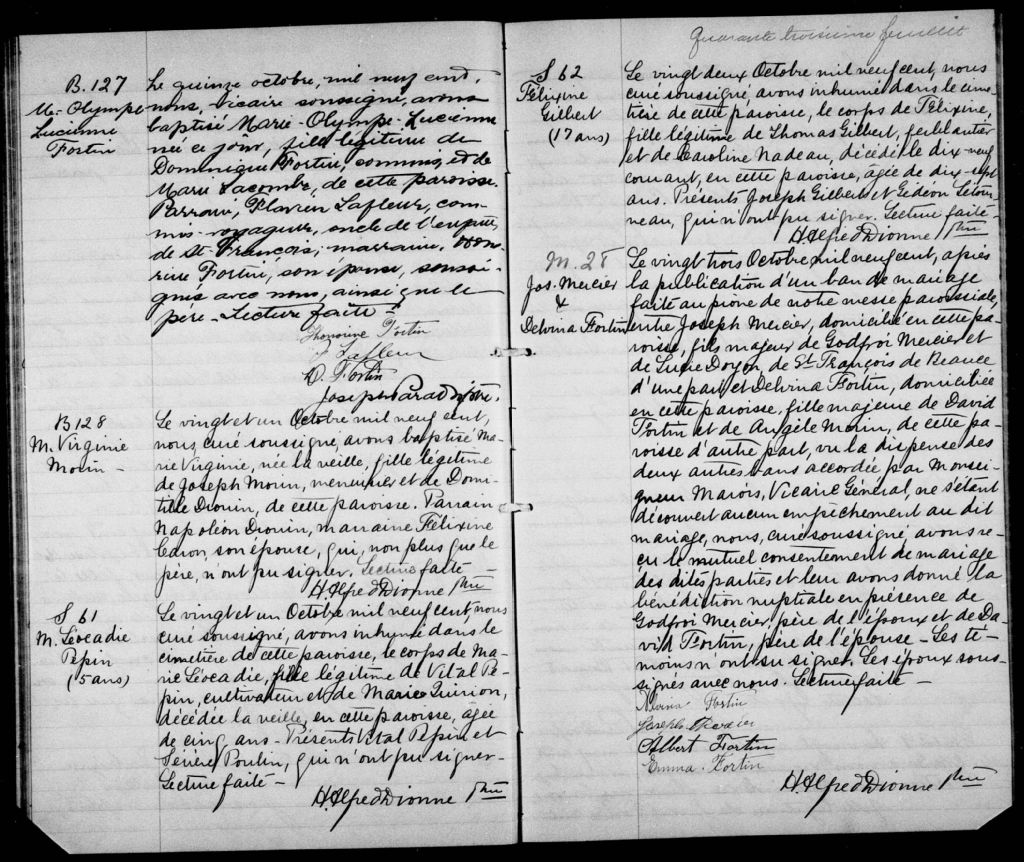 B. 127
M. Olympe
Lucienne
Fortin
Le quinze octobre, mil neuf cent,
nous, vicaire soussigné, avons
baptisé Marie-Olympe-Lucienne
née ce jour, fille légitime de
Dominique Fortin, commis, et de
Marie Lacombe, de cette paroisse.
Parrain, Flavien Lafleur, com-
mis-voyageur, oncle de l'enfant,
de St-François; marraine, Hono-
rine Fortin, son épouse, soussi-
gnés avec nous, ainsi que le
père. Lecture faite -
Honorine Fortin
F. Lafleur
D. Fortin
Joseph Paradis, ptre.
B 128
M. Virginie
Morin -
Le vingt et un Octobre mil neuf cent,
nous, curé soussigné, avons baptisé Ma-
rie Virginie, née la veille, fille légitime
de Joseph Morin, menuisier, et de Domi-
tilde Drouin, de cette paroisse. Parrain
Napoléon Drouin, marraine Félixine
Caron, son épouse, qui, non plus que le
père, n'ont pu signer. Lecture faite -
H. Alfred Dionne Ptre
S 61
M. Léocadie
Pepin
(5 ans)
Le vingt et un Octobre mil neuf cent, nous
curé soussigné, avons inhumé dans le
cimetière de cette paroisse, le corps de Ma-
rie Léocadie, fille légitime de Vital Pe-
pin, cultivateur et de Marie Quirion,
décédée la veille, en cette paroisse, agée
de cinq ans - Présents Vital Pepin et
Poulin, qui n'ont pu signer -
Lecture faite -
H. Alfred Dionne Ptre
Quarante troisième feuillet
S 62
Félixine
Gilbert
(17 ans)
Le vingt deux Octobre mil neuf cent, nous
curé soussigné, avons inhumé dans le cime-
tière de cette paroisse, le corps de Félixine,
fille légitime de Thomas Gilbert, ferblantier
et de Caroline Nadeau, décédée le dix-neuf
courant, en cette paroisse, agée de dix-sept
ans. Présents Joseph Gilbert et Gédéon Létour-
neau, qui n'ont pu signer. Lecture faite -
H. Alfred Dionne Ptre
M. 28
Jos. Mercier
&
Delvina Fortin
Le vingt trois Octobre mil neuf cent, après
la publication d'un ban de mariage
faite au prône de notre messe paroissiale,
entre Joseph Mercier, domicilié en cette pa-
roisse, fils majeur de Godfroi Mercier et
de Lucie Doyon, de St. François de Beauce
d'une part et Delvina Fortin, domiciliée
en cette paroisse, fille majeure de David
Fortin et de Angèle Morin, de cette pa-
roisse d'autre part, vu la dispense des
deux autres bans accordée par Monsei-
gneur Marois, Vicaire Général, ne s'étant
découvert aucun empêchement au dit
mariage, nous, curé soussigné, avons re-
çu le mutuel consentement de mariage
des dites parties et leur avons donné la
bénédiction nuptiale en présence de
Godfroi Mercier, père de l'époux et de Da-
vid Fortin, père de l'épouse - Les té-
moins n'ont su signer. Les époux sous-
signés avec nous. Lecture faite -
Fortin
Joseph Mercier
Albert Fortin
Emma Fortin
H. Alfred Dionne Ptre